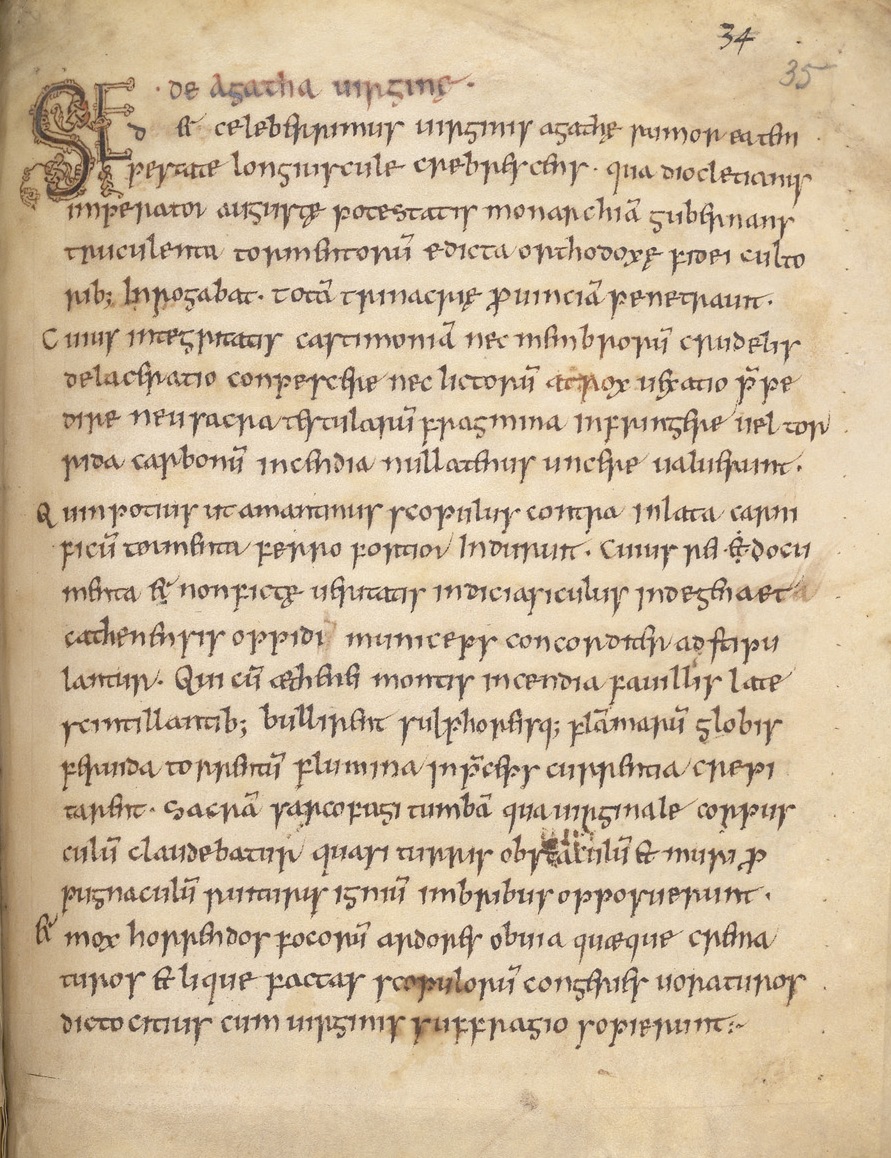 34
35
· de agatha uirginę ·
SED &  celeberrimus uirginis agathę rumor eatẽn
perstate longiuscule crebrescens · qua diocletianus
imperator augustę potestatis monarchiã gubernans
truculenta tormentorũ edicta orthodoxę fidei culto
rib; Inrogabat · totã trinacrię ꝓuinciã penetrauit.
Cuius integritatis castimoniã nec membrorũ crudelis
dilaceratio conpescere nec lictorũ atrox uexatio p̃pe
dire neu sacra testularũ fragmina infringere uel tor
rida carbonũ incendia nullatenus uncere ualuerunt.
Quin potius ut amantinus scopulus contra inlata carni
ficũ tormenta ferro fortior Induruit. Cuius rei & docu
menta & non fictę ueritatis indicia siculus indegena et
cathenensis oppidi municeps concorditer adstipu
lantur. Qui cũ æthenei montis incendia fauillis late
scintillantib; bullirent sulphoreisq; flãmarũ globis
feruida torrentũ flumina in p̃ceps currentia crepi
tarent. Sacrã sarcofagi tumbã qua uirginale corpus
culũ claudebatur quasi turris obstaculũ & muri ꝓ
pugnaculũ ruituris ignium imbribus opposuerunt.
& mox horrendos focorũ ardores obuia quæque crema
turos & lique factas scopulorũ congeries uoraturos
dicto citius cum uirginis suffragio sopierunt:~